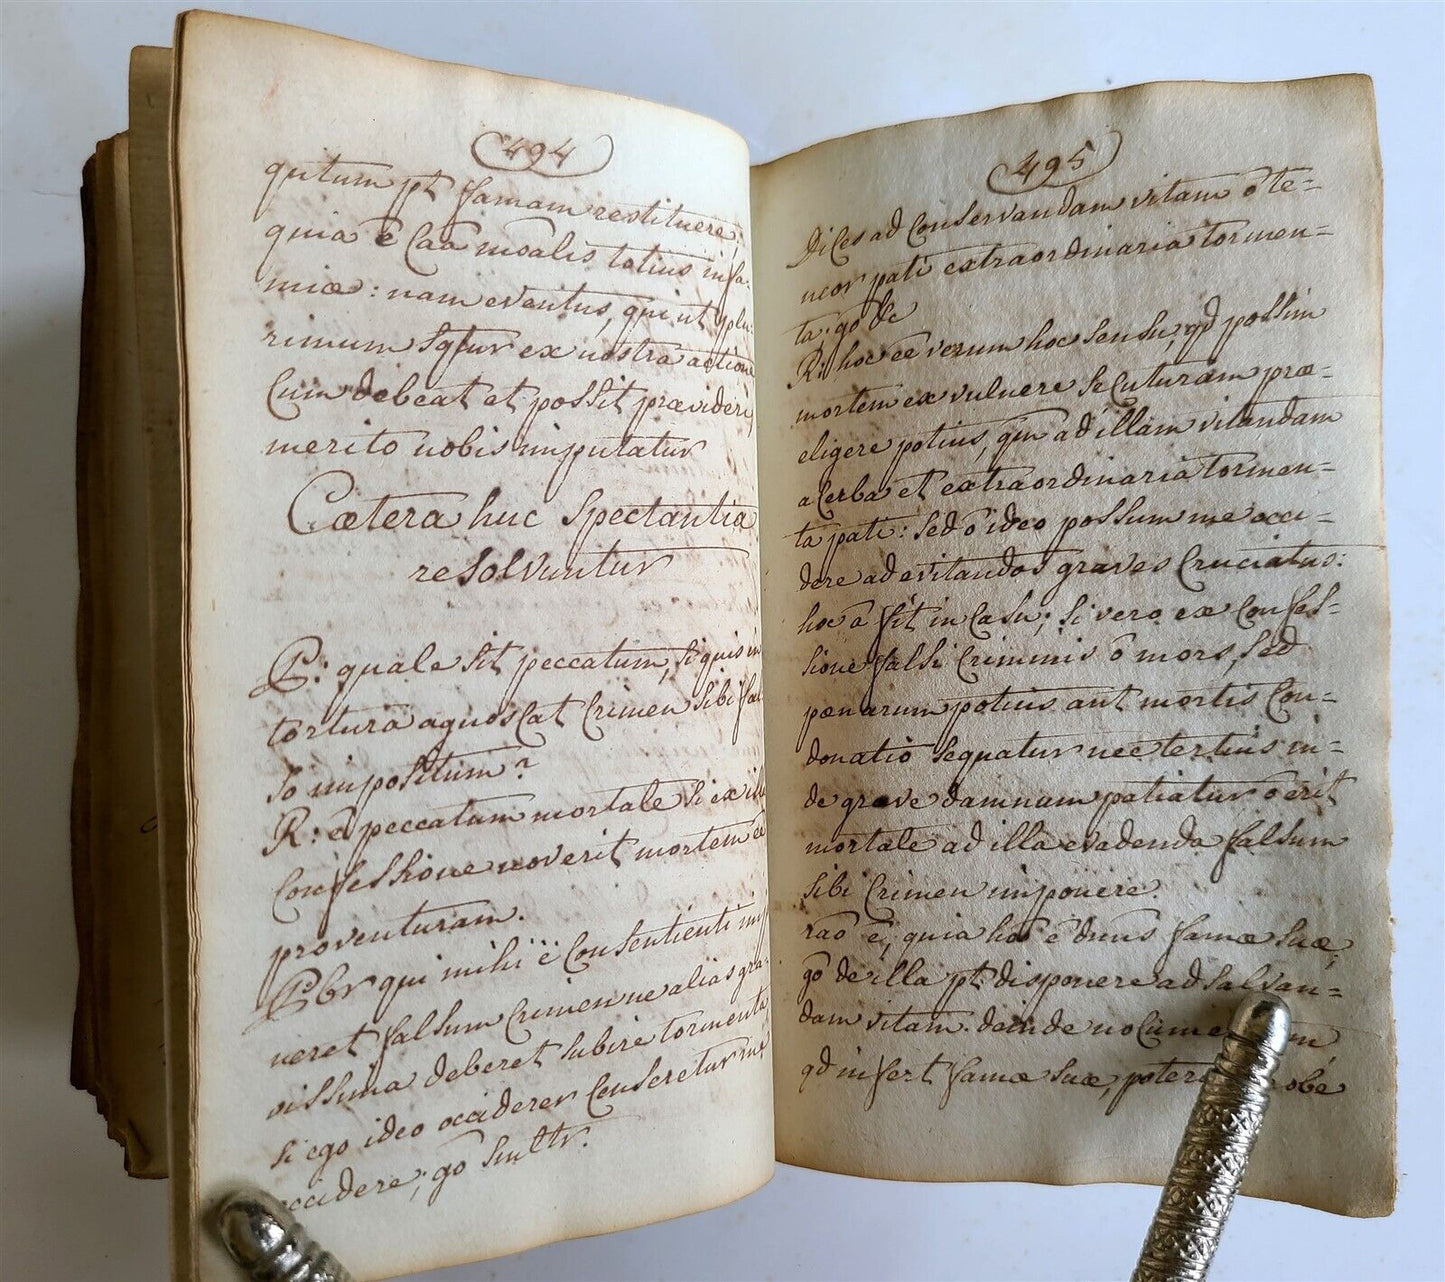 494
qutum pt famam restituere:
quia ē caã moalis totius infa-
miæ: nam eventus, qui ut plu-
rimum sqtur ex nostra actione
Cum debeat et possit prævideri,
merito nobis imputatur
Cætera huc Spectantia
resolvuntur
P: quale sit peccatum, si quis in
torturâ agnoscat Crimen sibi fal
so impositum?
R: ē peccatum mortale si ex illa
Confessione noverit mortem
proventuram.
Pbr qui mihi Consentienti im
neret falsum Crimen ne alias gra-
vissima deberet subire tormenta
si ego ideo occiderer Conseretur me
occidere; gõ
495
Dices ad Conservandam vitam õ te-
neor pati extraordinaria tormen-
ta; go &c
R: hoc eē verum hoc sensu, qd possim
mortem ex vulnere secuturam præ-
eligere potius, qm ad illam vitandam
acerba et extraordinaria tormen-
ta pati: sed õ ideo possum me occi-
dere ad evitandos graves Cruciatus:
hoc ã fit in Casu; si vero ex Confes-
sione falsi Criminis õ mors, sed
pænarum potius aut mortis Con-
donatio sequatur nec tertius in-
de grave damnum patiatur õ erit
mortale ad illa evadenda falsum
sibi Crimen imponere.
raõ ē, quia hõ ē dnus famæ suæ,
gõ de illa pt disponere ad salvan-
dam vitam. deinde
qd infert famæ suæ,